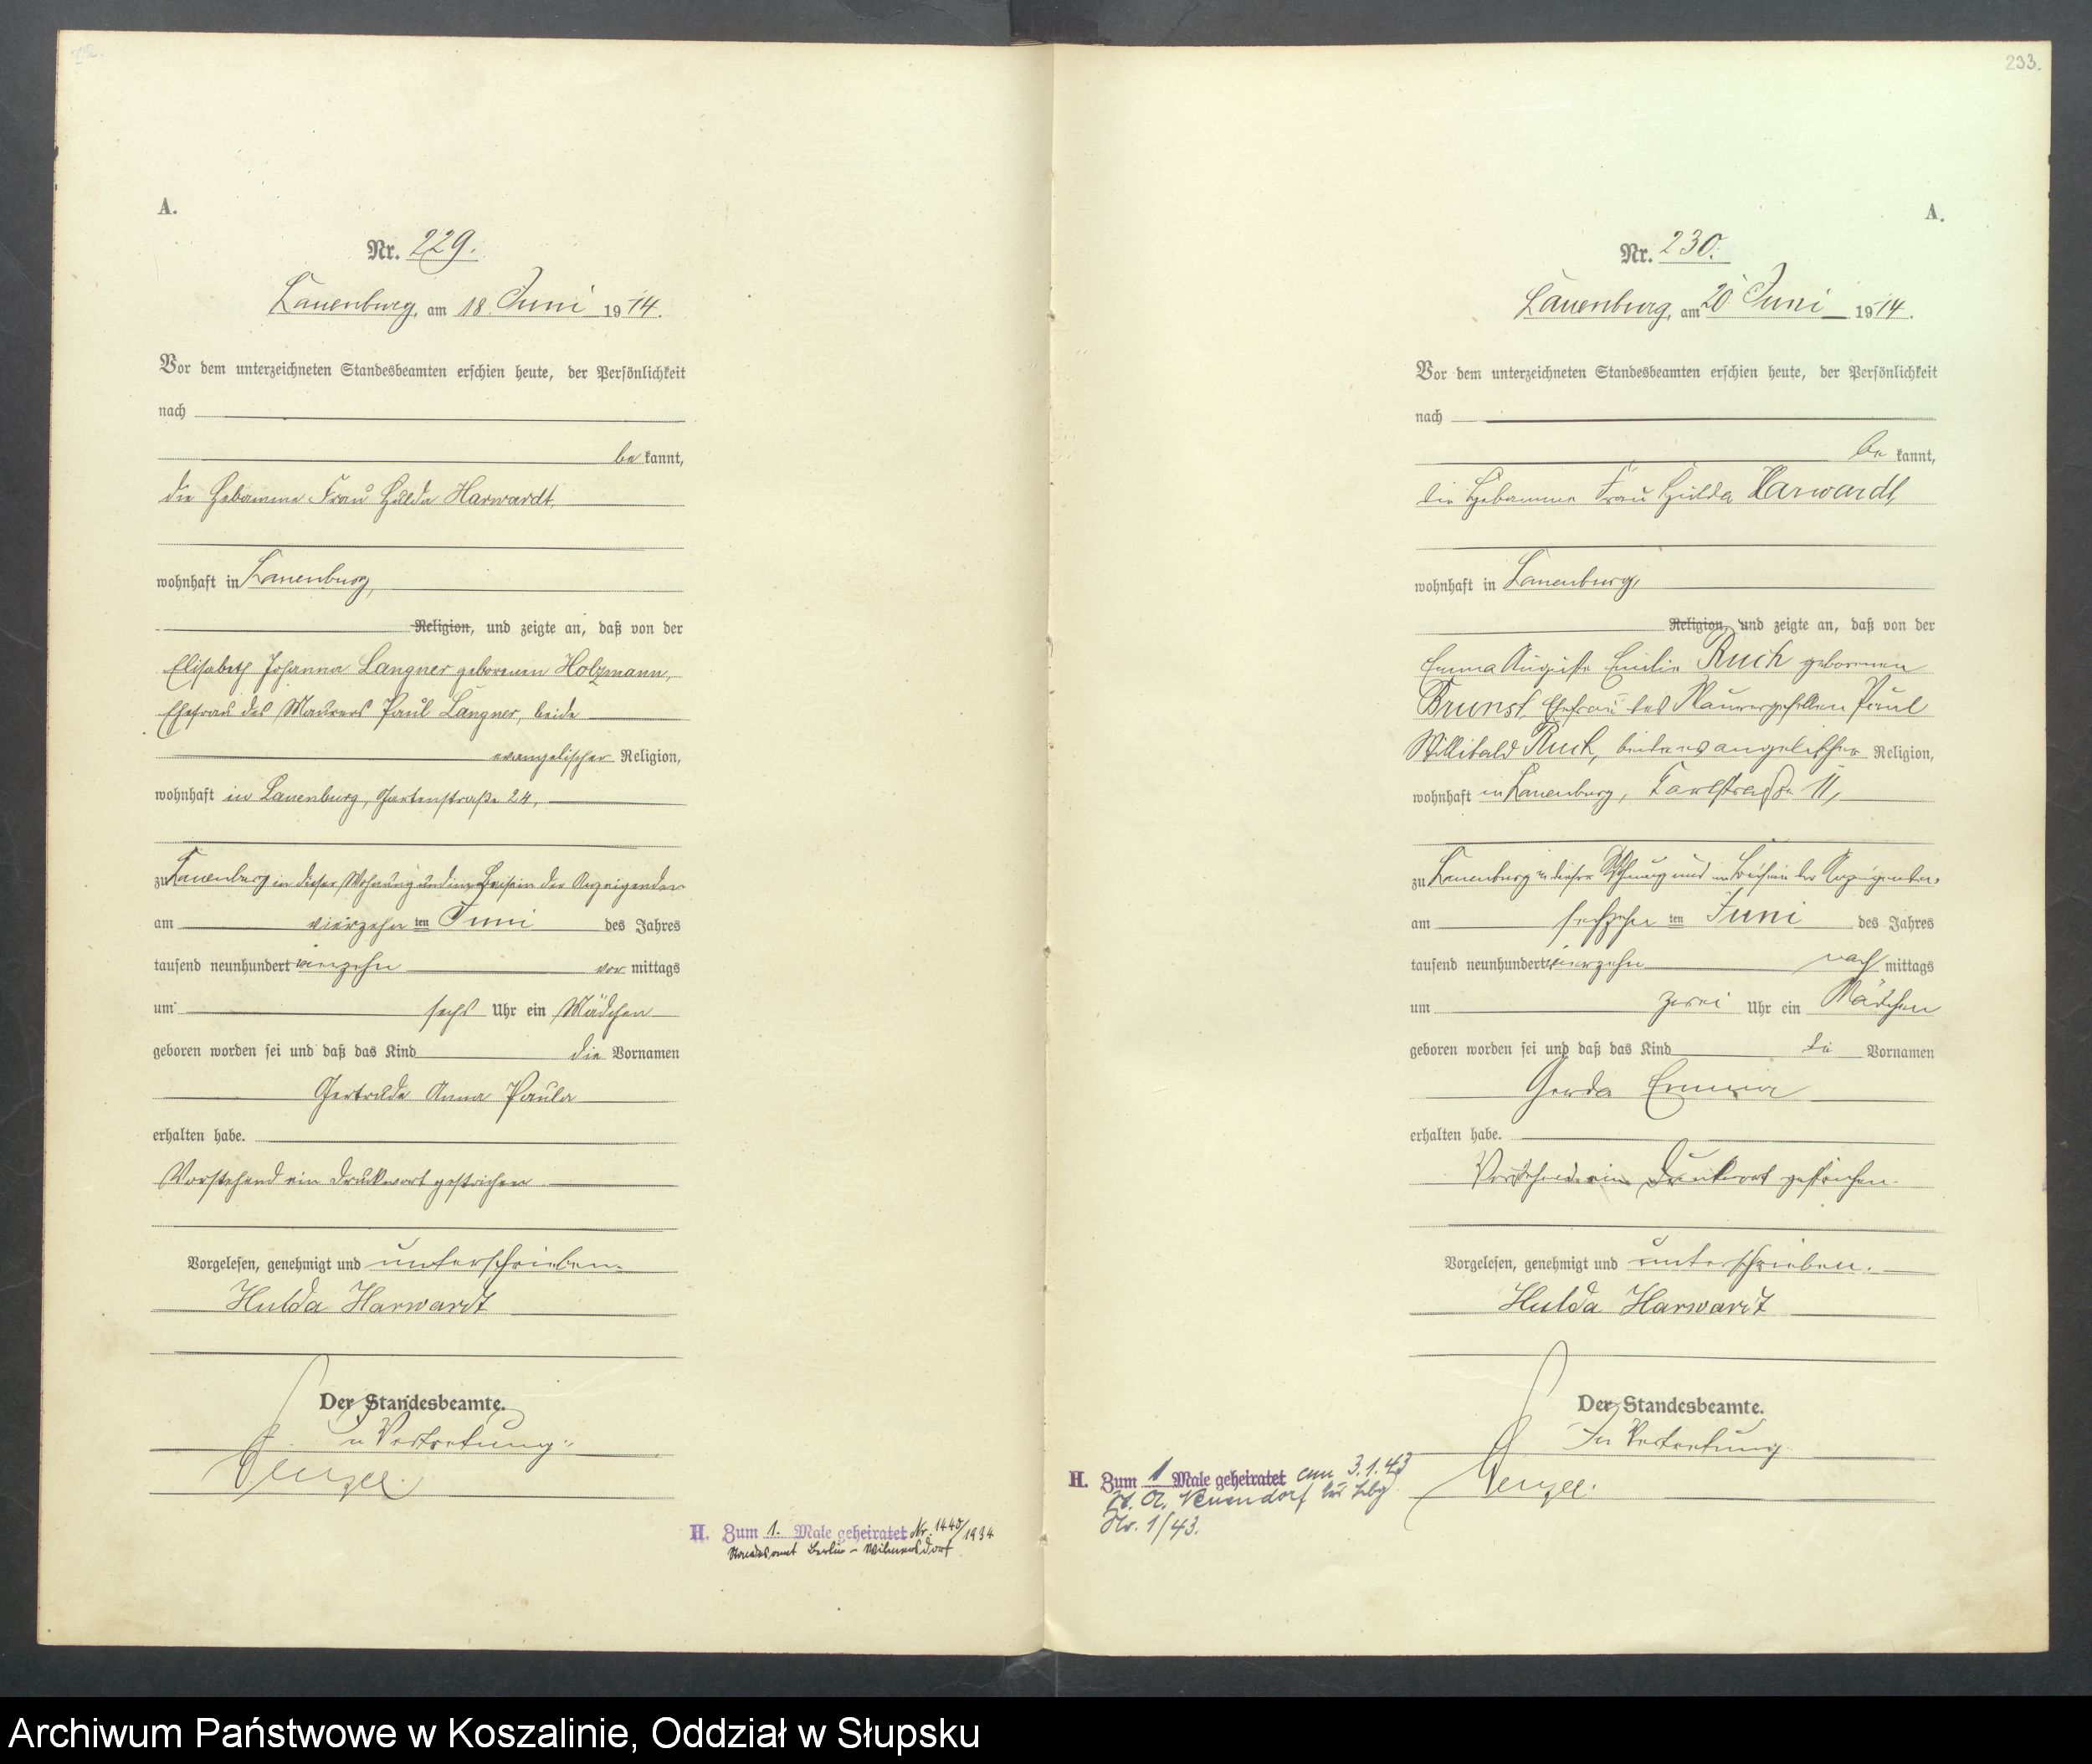 A.
Nr. 229.
Lauenburg, am 18. Juni 1914.
Vor dem unterzeichneten Standesbeamten erschien heute, der Persönlichkeit
nach
be kannt,
die Hebamme Frau Hulda Harwardt,
wohnhaft in Lauenburg,
Religion, und zeigte an, daß von der
Elisabeth Johanna Langner geborenen Holzmann,
Ehefrau des Maurers Paul Langner, beide
evangelischer Religion,
wohnhaft in Lauenburg, Gartenstraße 24,
zu Lauenburg in dieser Wohnung und in Beisein der Anzeigenden
am vierzehn ten Juni des Jahres
tausend neunhundert vierzehn vor mittags
um sechs Uhr ein Mädchen
geboren worden sei und daß das Kind die Vornamen
Gertrude Anna Paula
erhalten habe.
Vorstehend ein Druckwort gestrichen
Vorgelesen, genehmigt und unterschrieben
Hulda Harwardt
Der Standesbeamte.
In Vertretung:
H. Zum 1. Male geheiratet Nr. 1440/1934
Standesamt Berlin-Wilmersdorf
233.
A.
Nr. 230.
Lauenburg, am 20 Juni 1914.
Vor dem unterzeichneten Standesbeamten erschien heute, der Persönlichkeit
nach
be kannt,
die Hebamme Frau Hulda Harwardt,
wohnhaft in Lauenburg,
Religion, und zeigte an, daß von der
Emma Auguste Emilie Ruch geborenen
Brunst, Ehefrau des Maurergesellen Paul
Willibald Ruch, beide evangelischer Religion,
wohnhaft in Lauenburg, 11,
zu Lauenburg in dieser Wohnung und in Beisein der Anzeigenden,
am sechzehn ten Juni des Jahres
tausend neunhundert vierzehn nach mittags
um zwei Uhr ein Mädchen
geboren worden sei und daß das Kind die Vornamen
Gerda Emma
erhalten habe.
Vorstehend ein Druckwort gestrichen.
Vorgelesen, genehmigt und unterschrieben.
Hulda Harwardt
Der Standesbeamte.
In Vertretung
H. Zum 1 Male geheiratet am 3.1.43
St. A. Neuendorf bei Lbg
Nr. 1/43.
Archiwum Państwowe w Koszalinie, Oddział w Słupsku